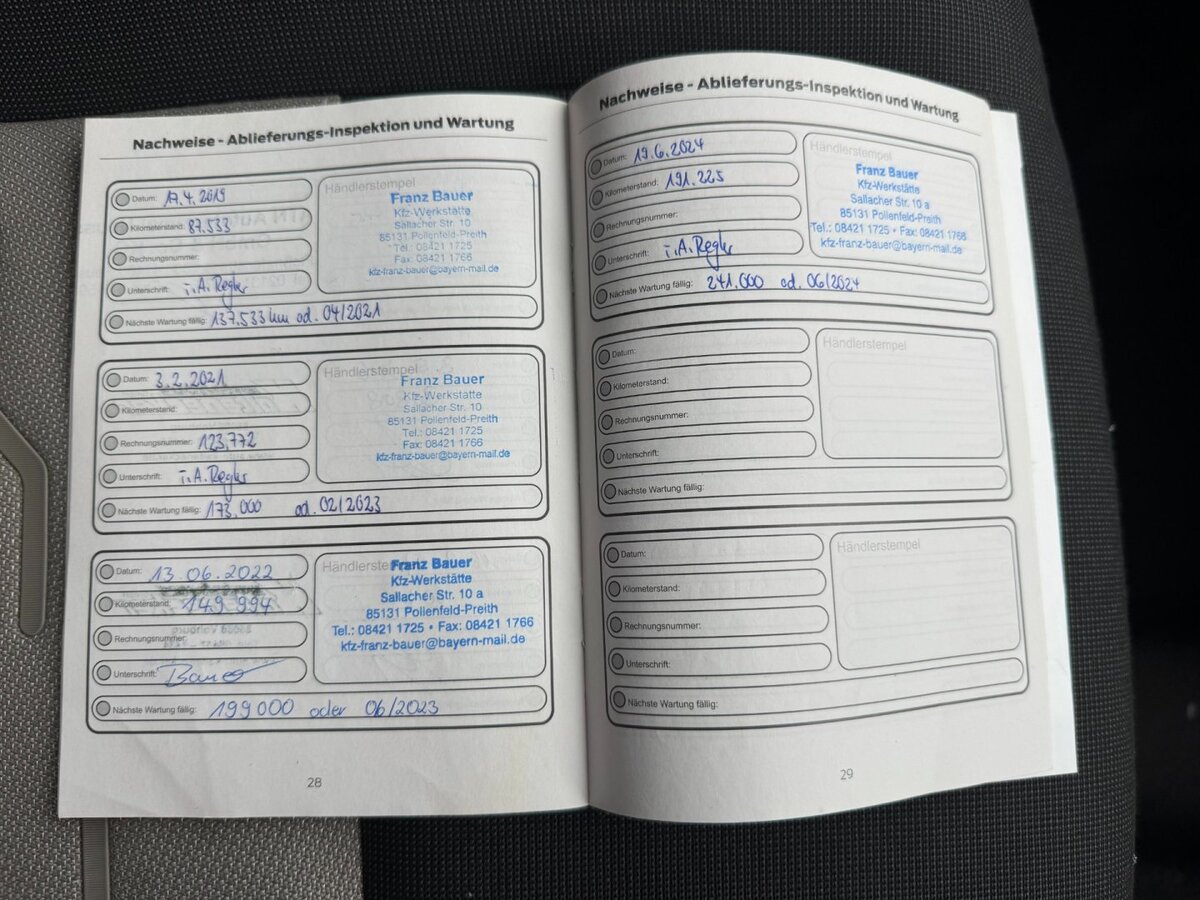 Nachweise - Ablieferungs-Inspektion und Wartung
Datum: 17.4.2019
Kilometerstand: 87.533
Rechnungsnummer:
Unterschrift: i.A. Regler
Nächste Wartung fällig: 137.533 km od. 04/2021
Händlerstempel
Franz Bauer
Kfz-Werkstätte
Sallacher Str. 10
85131 Pollenfeld-Preith
Tel.: 08421 1725
Fax: 08421 1766
kfz-franz-bauer@bayern-mail.de
Datum: 3.2.2021
Kilometerstand:
Rechnungsnummer: 123,772
Unterschrift: i.A. Regler
Nächste Wartung fällig: 173.000 od. 02/2023
Händlerstempel
Franz Bauer
Kfz-Werkstätte
Sallacher Str. 10
85131 Pollenfeld-Preith
Tel.: 08421 1725
Fax: 08421 1766
kfz-franz-bauer@bayern-mail.de
Datum: 13.06.2022
Kilometerstand: 149 994
Rechnungsnummer:
Unterschrift: Bauer
Nächste Wartung fällig: 199000 oder 06/2023
Händlerste
Franz Bauer
Kfz-Werkstätte
Sallacher Str. 10 a
85131 Pollenfeld-Preith
Tel.: 08421 1725 • Fax: 08421 1766
kfz-franz-bauer@bayern-mail.de
28
Nachweise - Ablieferungs-Inspektion und Wartung
Datum: 19.6.2024
Kilometerstand: 191.225
Rechnungsnummer:
Unterschrift: i.A. Regler
Nächste Wartung fällig: 241.000 od. 06/2024
Händlerstempel
Franz Bauer
Kfz-Werkstätte
Sallacher Str. 10 a
85131 Pollenfeld-Preith
Tel.: 08421 1725 • Fax: 08421 1766
kfz-franz-bauer@bayern-mail.de
Datum:
Kilometerstand:
Rechnungsnummer:
Unterschrift:
Nächste Wartung fällig:
Händlerstempel
Datum:
Kilometerstand:
Rechnungsnummer:
Unterschrift:
Nächste Wartung fällig:
Händlerstempel
29